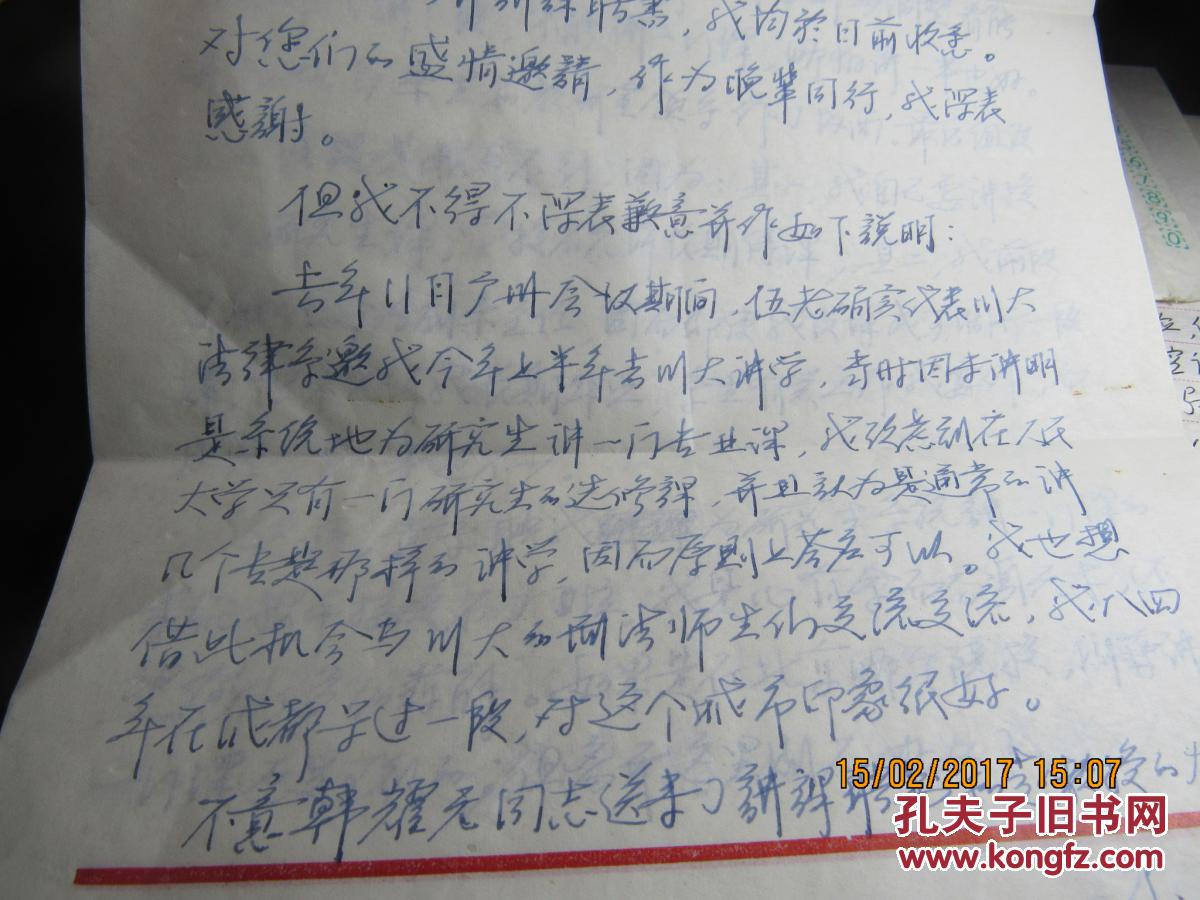 讲课聘书，我均於日前收悉。
对您们的盛情邀請，作为晚辈同行，我深表
感謝。
但我不得不深表歉意并作如下說明：
去年11月广州会议期间，伍老确实代表川大
法律系邀我今年上半年去川大讲学，当时因未讲明
是系统地为研究生讲一门专业课，我考虑到在人民
大学只有一门研究生的选修課，并且认为是通常的讲
几个专题那样的讲学，因而原则上答应可以。我也想
借此机会与川大的刑法师生们交流交流，我八四
年在成都呆过一段，对这个城市印象很好。
不意韩耀元同志送来了講課
15/02/2017 15:07
孔夫子旧书网
www.kongfz.com